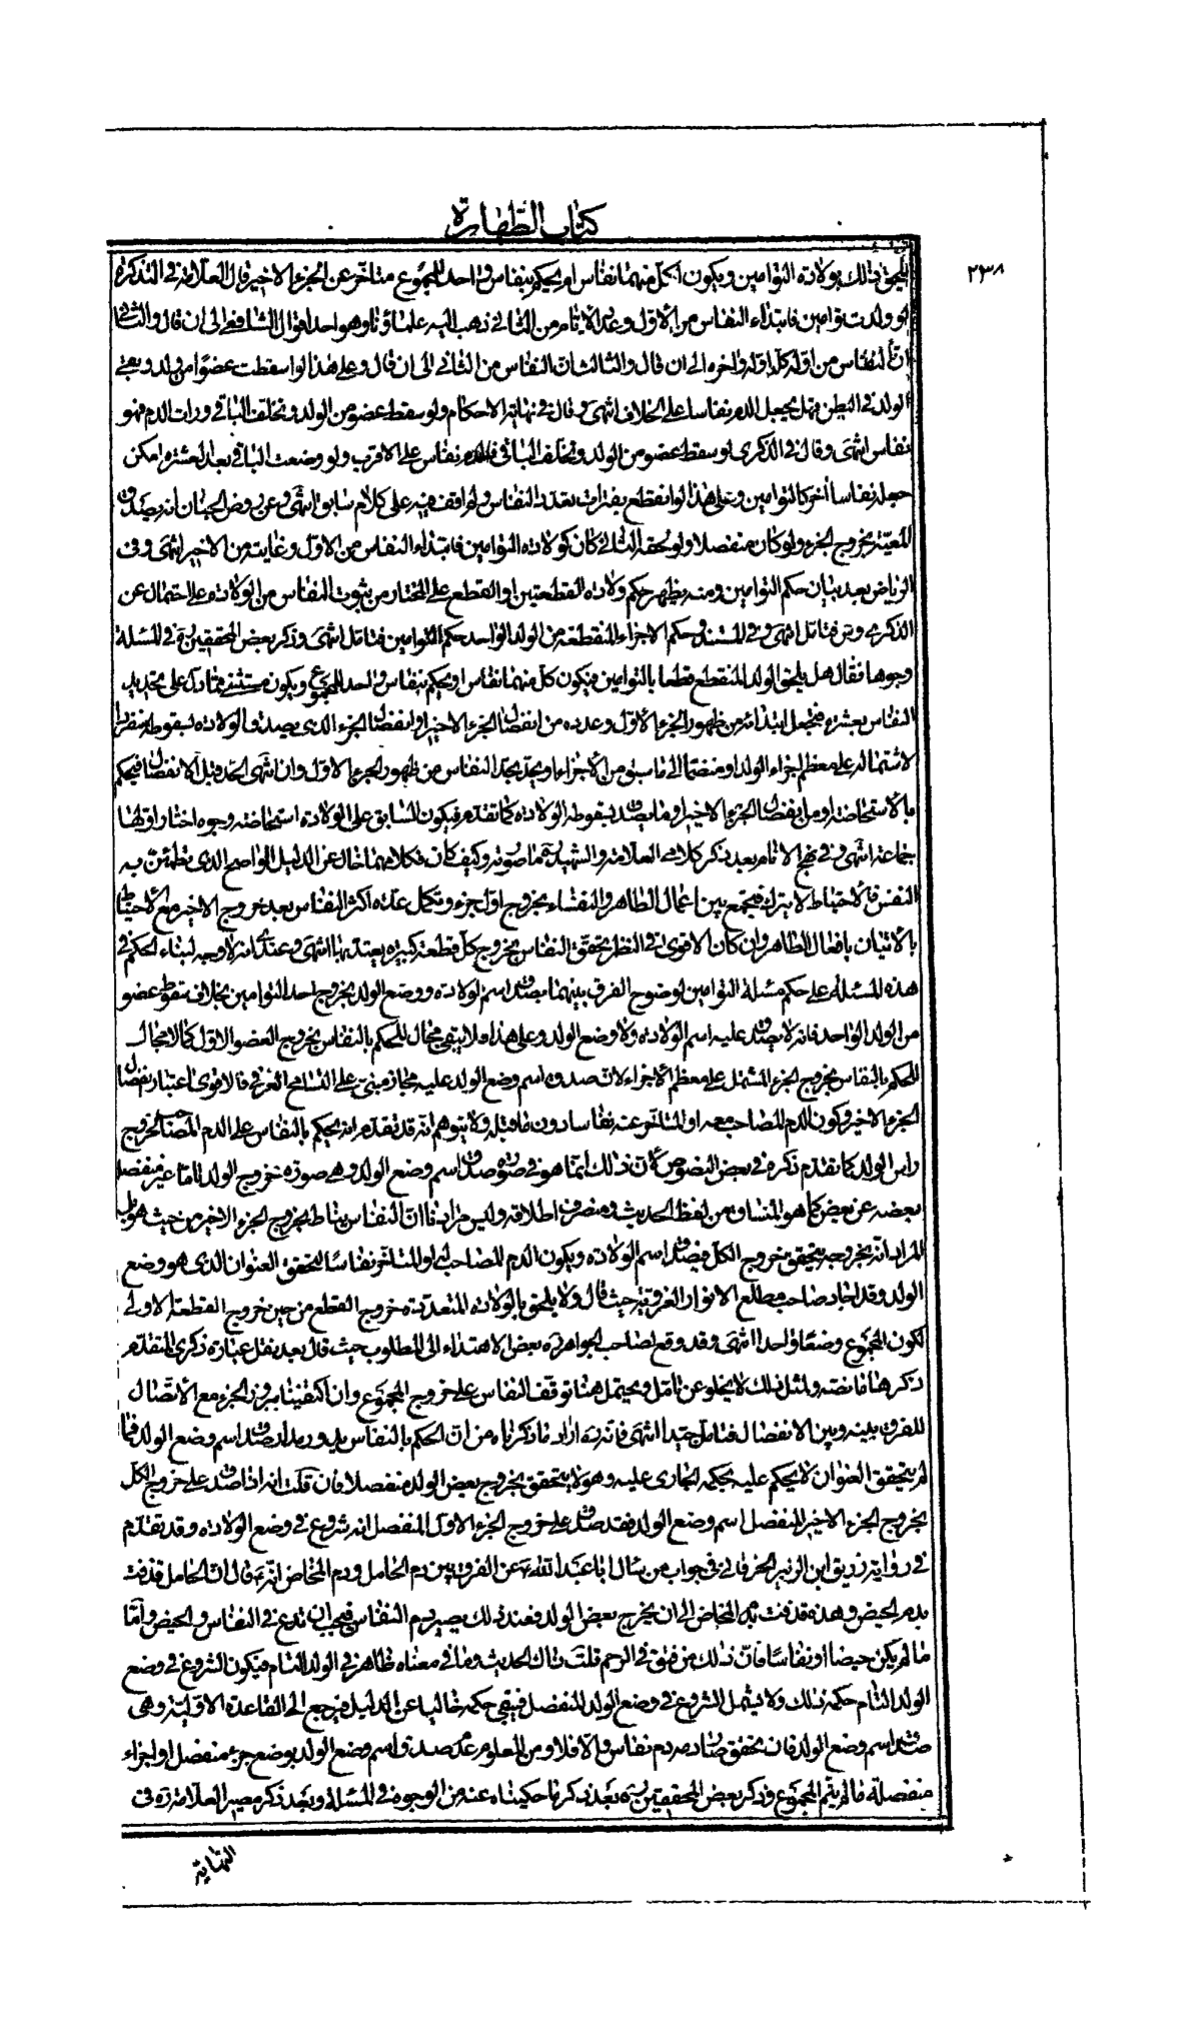 كتاب الطهارة
٢٣٨
يلحق ذلك بولادة التوامين ويكون لكل منهما نفاس او يحكم بنفاس واحد للمجموع متاخر عن الجزء الاخير قال العلامة في التذكرة
لو ولدت توامين فابتداء النفاس من الاول وعدد الايام من الثاني ذهب اليه علماؤنا وهو احد اقوال الشافعي الى ان قال والثاني
ان النفاس من اوله كله اوله واخره الى ان قال والثالث ان النفاس من الثاني الى ان قال وعلى هذا لو اسقطت عضوا من ولد وبقي
الولد في البطن فهل يجعل الدم نفاسا على الخلاف انتهى وقال في نهاية الاحكام ولو سقط عضو من الولد وتخلف الباقي ورات الدم فهو
نفاس انتهى وقال في الذكرى لو سقط عضو من الولد وتخلف الباقي فالدم نفاس على الاقرب ولو وضعت الباقي بعد العشرة امكن
جعله نفاسا اخر كالتوامين وعلى هذا لو انقطع بفترات تعدد النفاس ولم اقف فيه على كلام سابق انتهى وعن روض الجنان انه يصدق
المعية بخروج الجزء ولو كان منفصلا ولو لحقه الثاني كان كولادة التوامين فابتداء النفاس من الاول وغايته من الاخير انتهى وفي
الرياض بعد بيان حكم التوامين ومنه يظهر حكم ولادة القطعتين او القطع على المختار من ثبوت النفاس من الولادة على احتمال عن
الذكرى وض فتامل انتهى وفي المستند وحكم الاجزاء المنقطعة من الولد الواحد حكم التوامين فتامل انتهى وذكر بعض المحققين في المسئلة
وجوها فقال هل يلحق الولد المنقطع قطعا بالتوامين فيكون كل منهما نفاس او يحكم بنفاس واحد للمجموع ويكون مستثنى مما دل على تحديد
النفاس بعشرة فيجعل ابتداؤه من ظهور الجزء الاول وعدده من انفصال الجزء الاخير او انفصال الجزء الذي يصدق الولادة بسقوطه منفردا
لاشتماله على معظم اجزاء الولد او منضما الى ما سبق من الاجزاء او يحد بحد النفاس من ظهور الجزء الاول وان انتهى الحد قبل الانفصال فيحكم
بالاستحاضة او من انفصال الجزء الاخير او ما يصدق بسقوطه الولادة كما تقدم فيكون السابق على الولادة استحاضة وجوه اختار اولها
جماعة انتهى وفي نهج الانام بعد ذكر كلامي العلامة والشهيد ما صورته وكيف كان فكلاهما خال عن الدليل الواضح الذي تطمئن به
النفس فالاحتياط لا يترك فيجمع بين اعمال الطاهر والنفساء بخروج اول جزء وتكمل عدة اكثر النفاس بعد خروج الاخير مع الاحتياط
بالاتيان بافعال الطاهر وان كان الاقوى في النظر تحقق النفاس بخروج كل قطعة كبيرة يعتد بها انتهى وعندي انه لا وجه لبناء الحكم في
هذه المسئلة على حكم مسئلة التوامين لوضوح الفرق بينهما بصدق اسم الولادة ووضع الولد بخروج احد التوامين بخلاف سقوط عضو
من الولد الواحد فانه لا يصدق عليه اسم الولادة ولا وضع الولد وعلى هذا فلا يبقى مجال للحكم بالنفاس بخروج العضو الاول كما لا مجال
للحكم بالنفاس بخروج الجزء المشتمل على معظم الاجزاء لان صدق اسم وضع الولد عليه مجاز مبني على التسامح العرفي فالاقوى اعتبار انفصال
الجزء الاخير وكون الدم المصاحب معه او المتاخر عنه نفاسا دون ما قبله ولا يتوهم انه قد تقدم انه يحكم بالنفاس على الدم المصاحب لخروج
راس الولد كما تقدم ذكره في بعض النصوص لان ذلك انما هو في صورة صدق اسم وضع الولد وهي صورة خروج الولد تاما غير منفصل
بعضه عن بعض كما هو المنساق من لفظ الحديث ومنصرف اطلاقه وليس مرادنا ان النفاس يناط بخروج الجزء الاخير من حيث هو بل
المراد انه بخروجه يتحقق خروج الكل فيصدق اسم الولادة ويكون الدم المصاحب له او المتاخر نفاسا لتحقق العنوان الذي هو وضع
الولد وقد اجاد صاحب مطلع الانوار الغروية حيث قال ولا يلحق بالولادة المتعددة خروج القطع من حين خروج القطعة الاولى
لكون المجموع وضعا واحدا انتهى وقد وقع لصاحب الجواهر ره بعض الاهتداء الى المطلوب حيث قال بعد نقل عبارة ذكرى المتقدم
ذكرها ما نصه ولمثل ذلك لا يخلو عن تامل ويحتمل هنا توقف النفاس على خروج المجموع وان اكتفينا ببروز الجزء مع الاتصال
للفرق بينه وبين الانفصال فتامل جيدا انتهى فانه ره اراد ما ذكرناه من ان الحكم بالنفاس يدور مدار صدق اسم وضع الولد فما
لم يتحقق العنوان لا يحكم عليه بحكمه الجاري عليه وهو لا يتحقق بخروج بعض الولد منفصلا فان قلت انه اذا صدق على خروج الكل
بخروج الجزء الاخير المنفصل اسم وضع الولد فقد صدق على خروج الجزء الاول المنفصل انه شروع في وضع الولادة وقد تقدم
في رواية زريق ابن الزبير الخرقاني في جواب من سال ابا عبد الله ع عن الفرق بين دم الحامل ودم المخاض انه ع قال ان الحامل قذفت
بدم الحيض وهذه قذفت بدم المخاض الى ان يخرج بعض الولد فعند ذلك يصير دم النفاس فيجب ان تدع في النفاس والحيض واما
ما لم يكن حيضا او نفاسا فان ذلك من فتق في الرحم قلت ذاك الحديث وما في معناه ظاهر في الولد التام فيكون الشروع في وضع
الولد التام حكمه ذلك ولا يشمل الشروع في وضع الولد المنفصل فيبقى حكمه خاليا عن الدليل فيرجع الى القاعدة الاولية وهي
صدق اسم وضع الولد فان تحقق صار دمه دم نفاس والا فلا ومن المعلوم عدم صدق اسم وضع الولد بوضع جزء منفصل او اجزاء
منفصلة ما لم يتم المجموع وذكر بعض المحققين ره بعد ذكر ما حكيناه عنه من الوجوه في المسئلة وبعد ذكر مصير العلامة ره في
النهاية